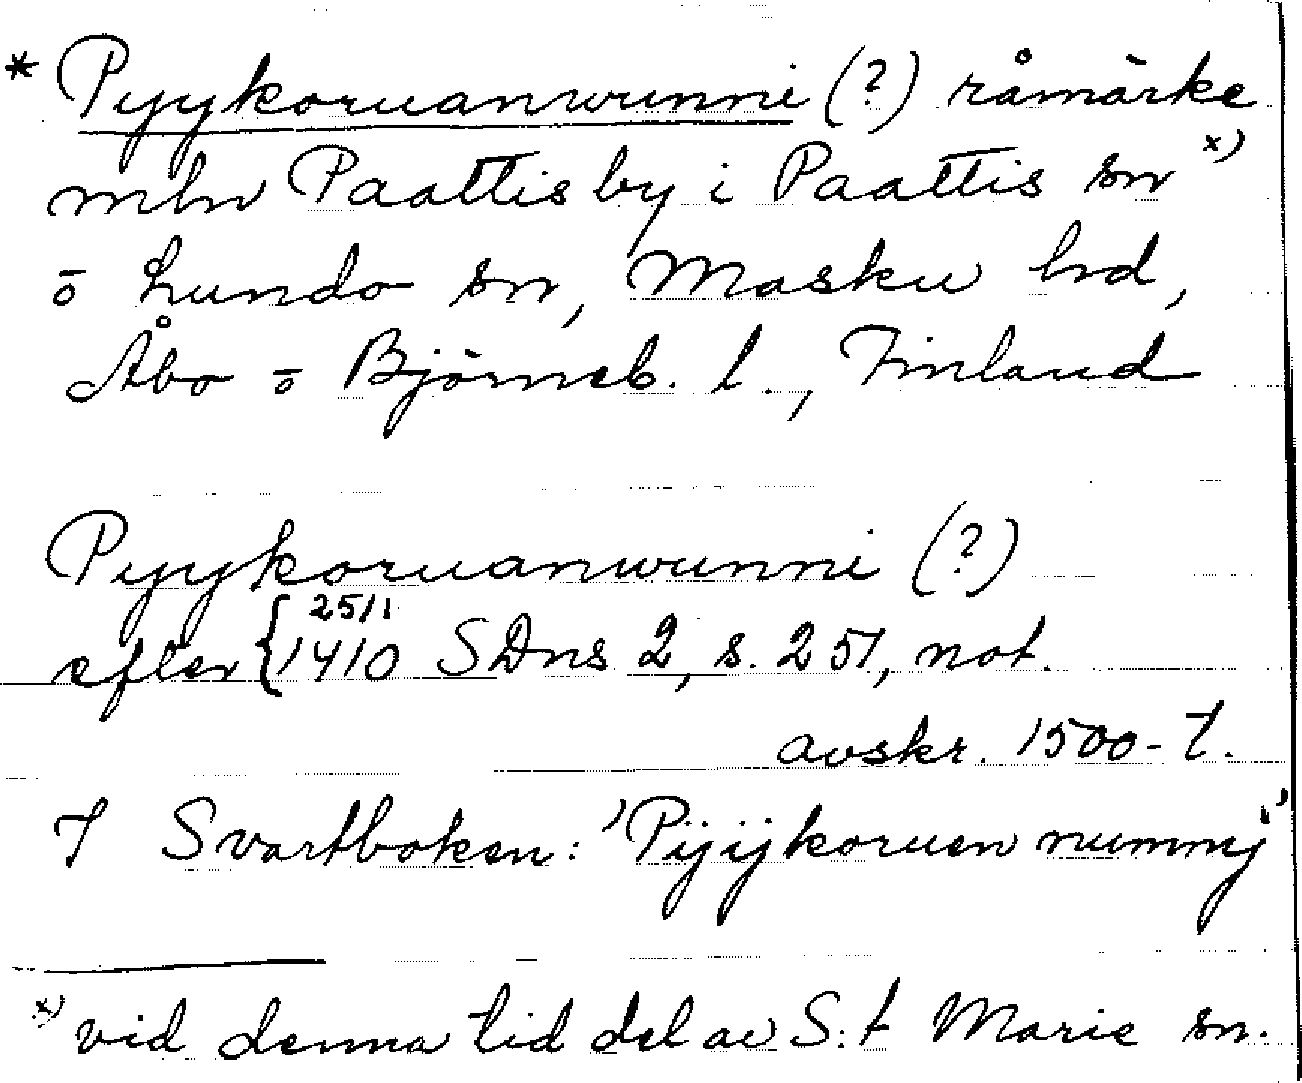 * Pyykoruanwunni (?) råmärke
mln Paattis by i Paattis sn x)
ō Lundo sn, Masku hd,
Åbo ō Björneb. l., Finland
Pyykoruanwunni (?)
25/1
efter { 1410 SDns 2, s. 251, not.
avskr. 1500-t.
I Svartboken: 'Pijijkoruen nummj'
x) vid denna tid del av S:t Marie sn.